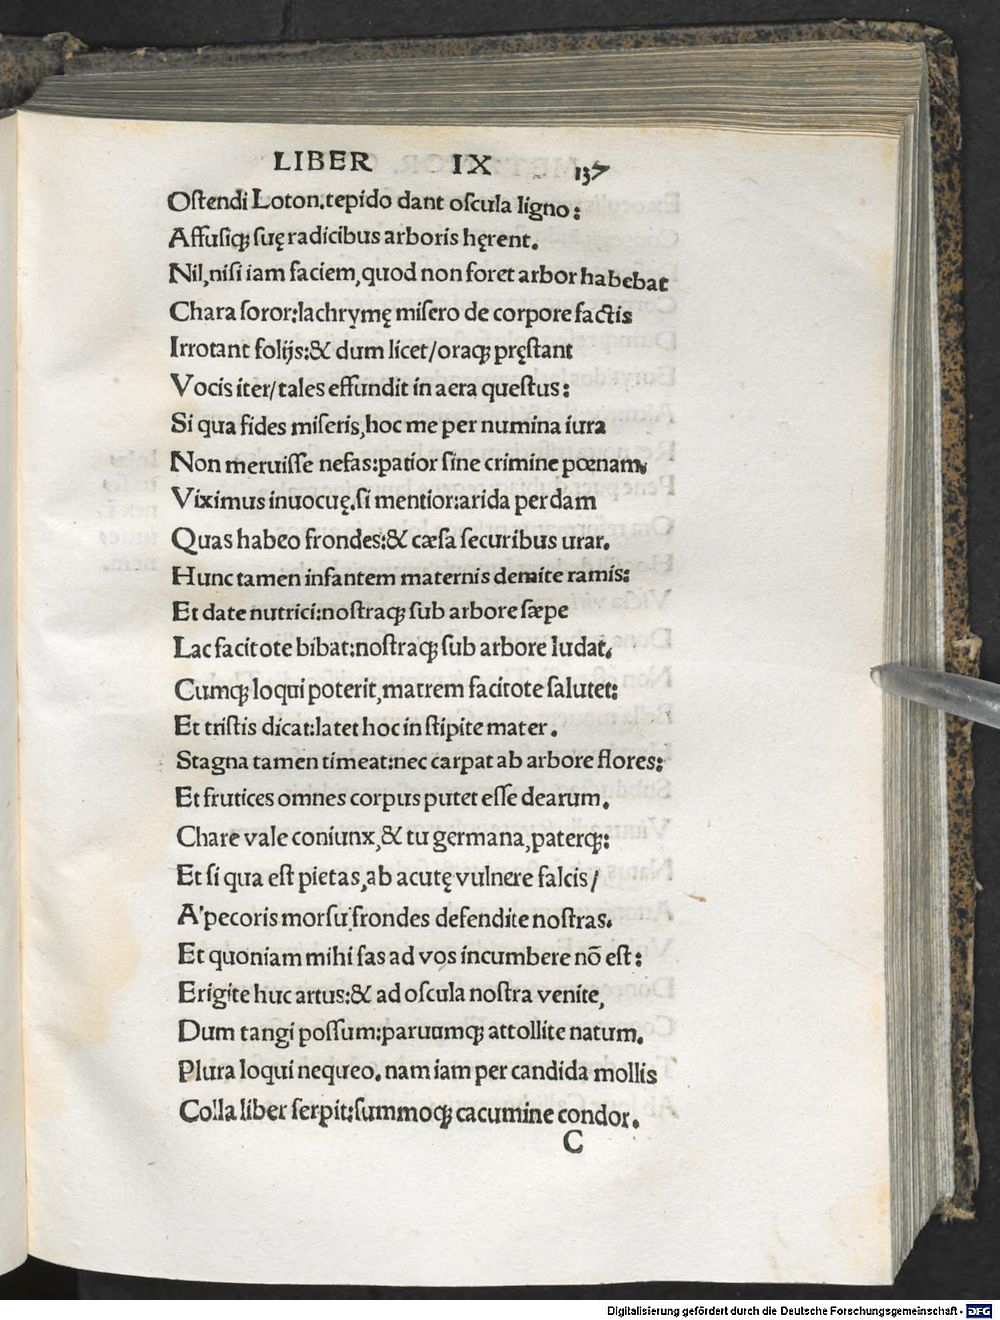 LIBER IX 137
Oſtendi Loton.tepido dant oſcula ligno:
Affuſiq; ſuę radicibus arboris hęrent.
Nil,niſi iam faciem,quod non foret arbor habebat
Chara ſoror:lachrymę miſero de corpore factis
Irrotant folijs:& dum licet/oraq; pręſtant
Vocis iter/tales effundit in aera queſtus:
Si qua fides miſeris,hoc me per numina iura
Non meruiſſe nefas:patior ſine crimine pœnam.
Viximus inuocuę.ſi mentior:arida perdam
Quas habeo frondes:& cæſa ſecuribus urar.
Hunc tamen infantem maternis demite ramis:
Et date nutrici:noſtraq; ſub arbore ſæpe
Lac facitote bibat:noſtraq; ſub arbore ludat.
Cumq; loqui poterit,matrem facitote ſalutet:
Et triſtis dicat:latet hoc in ſtipite mater.
Stagna tamen timeat:nec carpat ab arbore flores:
Et frutices omnes corpus putet eſſe dearum.
Chare vale coniunx,& tu germana,paterq;:
Et ſi qua eſt pietas,ab acutę vulnere falcis/
A'pecoris morſu frondes defendite noſtras.
Et quoniam mihi fas ad vos incumbere nō eſt:
Erigite huc artus:& ad oſcula noſtra venite,
Dum tangi poſſum:paruumq; attollite natum.
Plura loqui nequeo.nam iam per candida mollis
Colla liber ſerpit:ſummoq; cacumine condor.
C
Digitalisierung gefördert durch die Deutsche Forschungsgemeinschaft - DFG